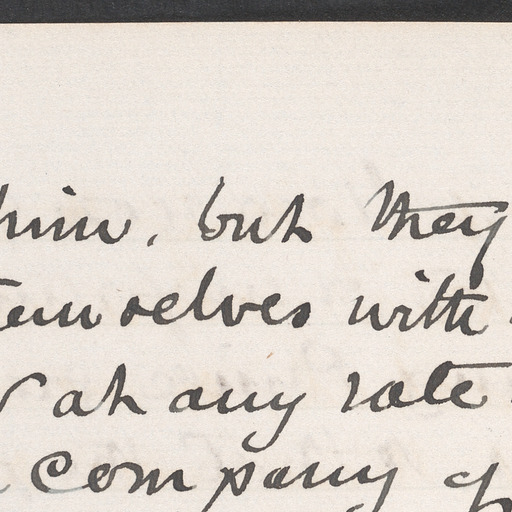 him, but they
themselves with
at any rate
company of